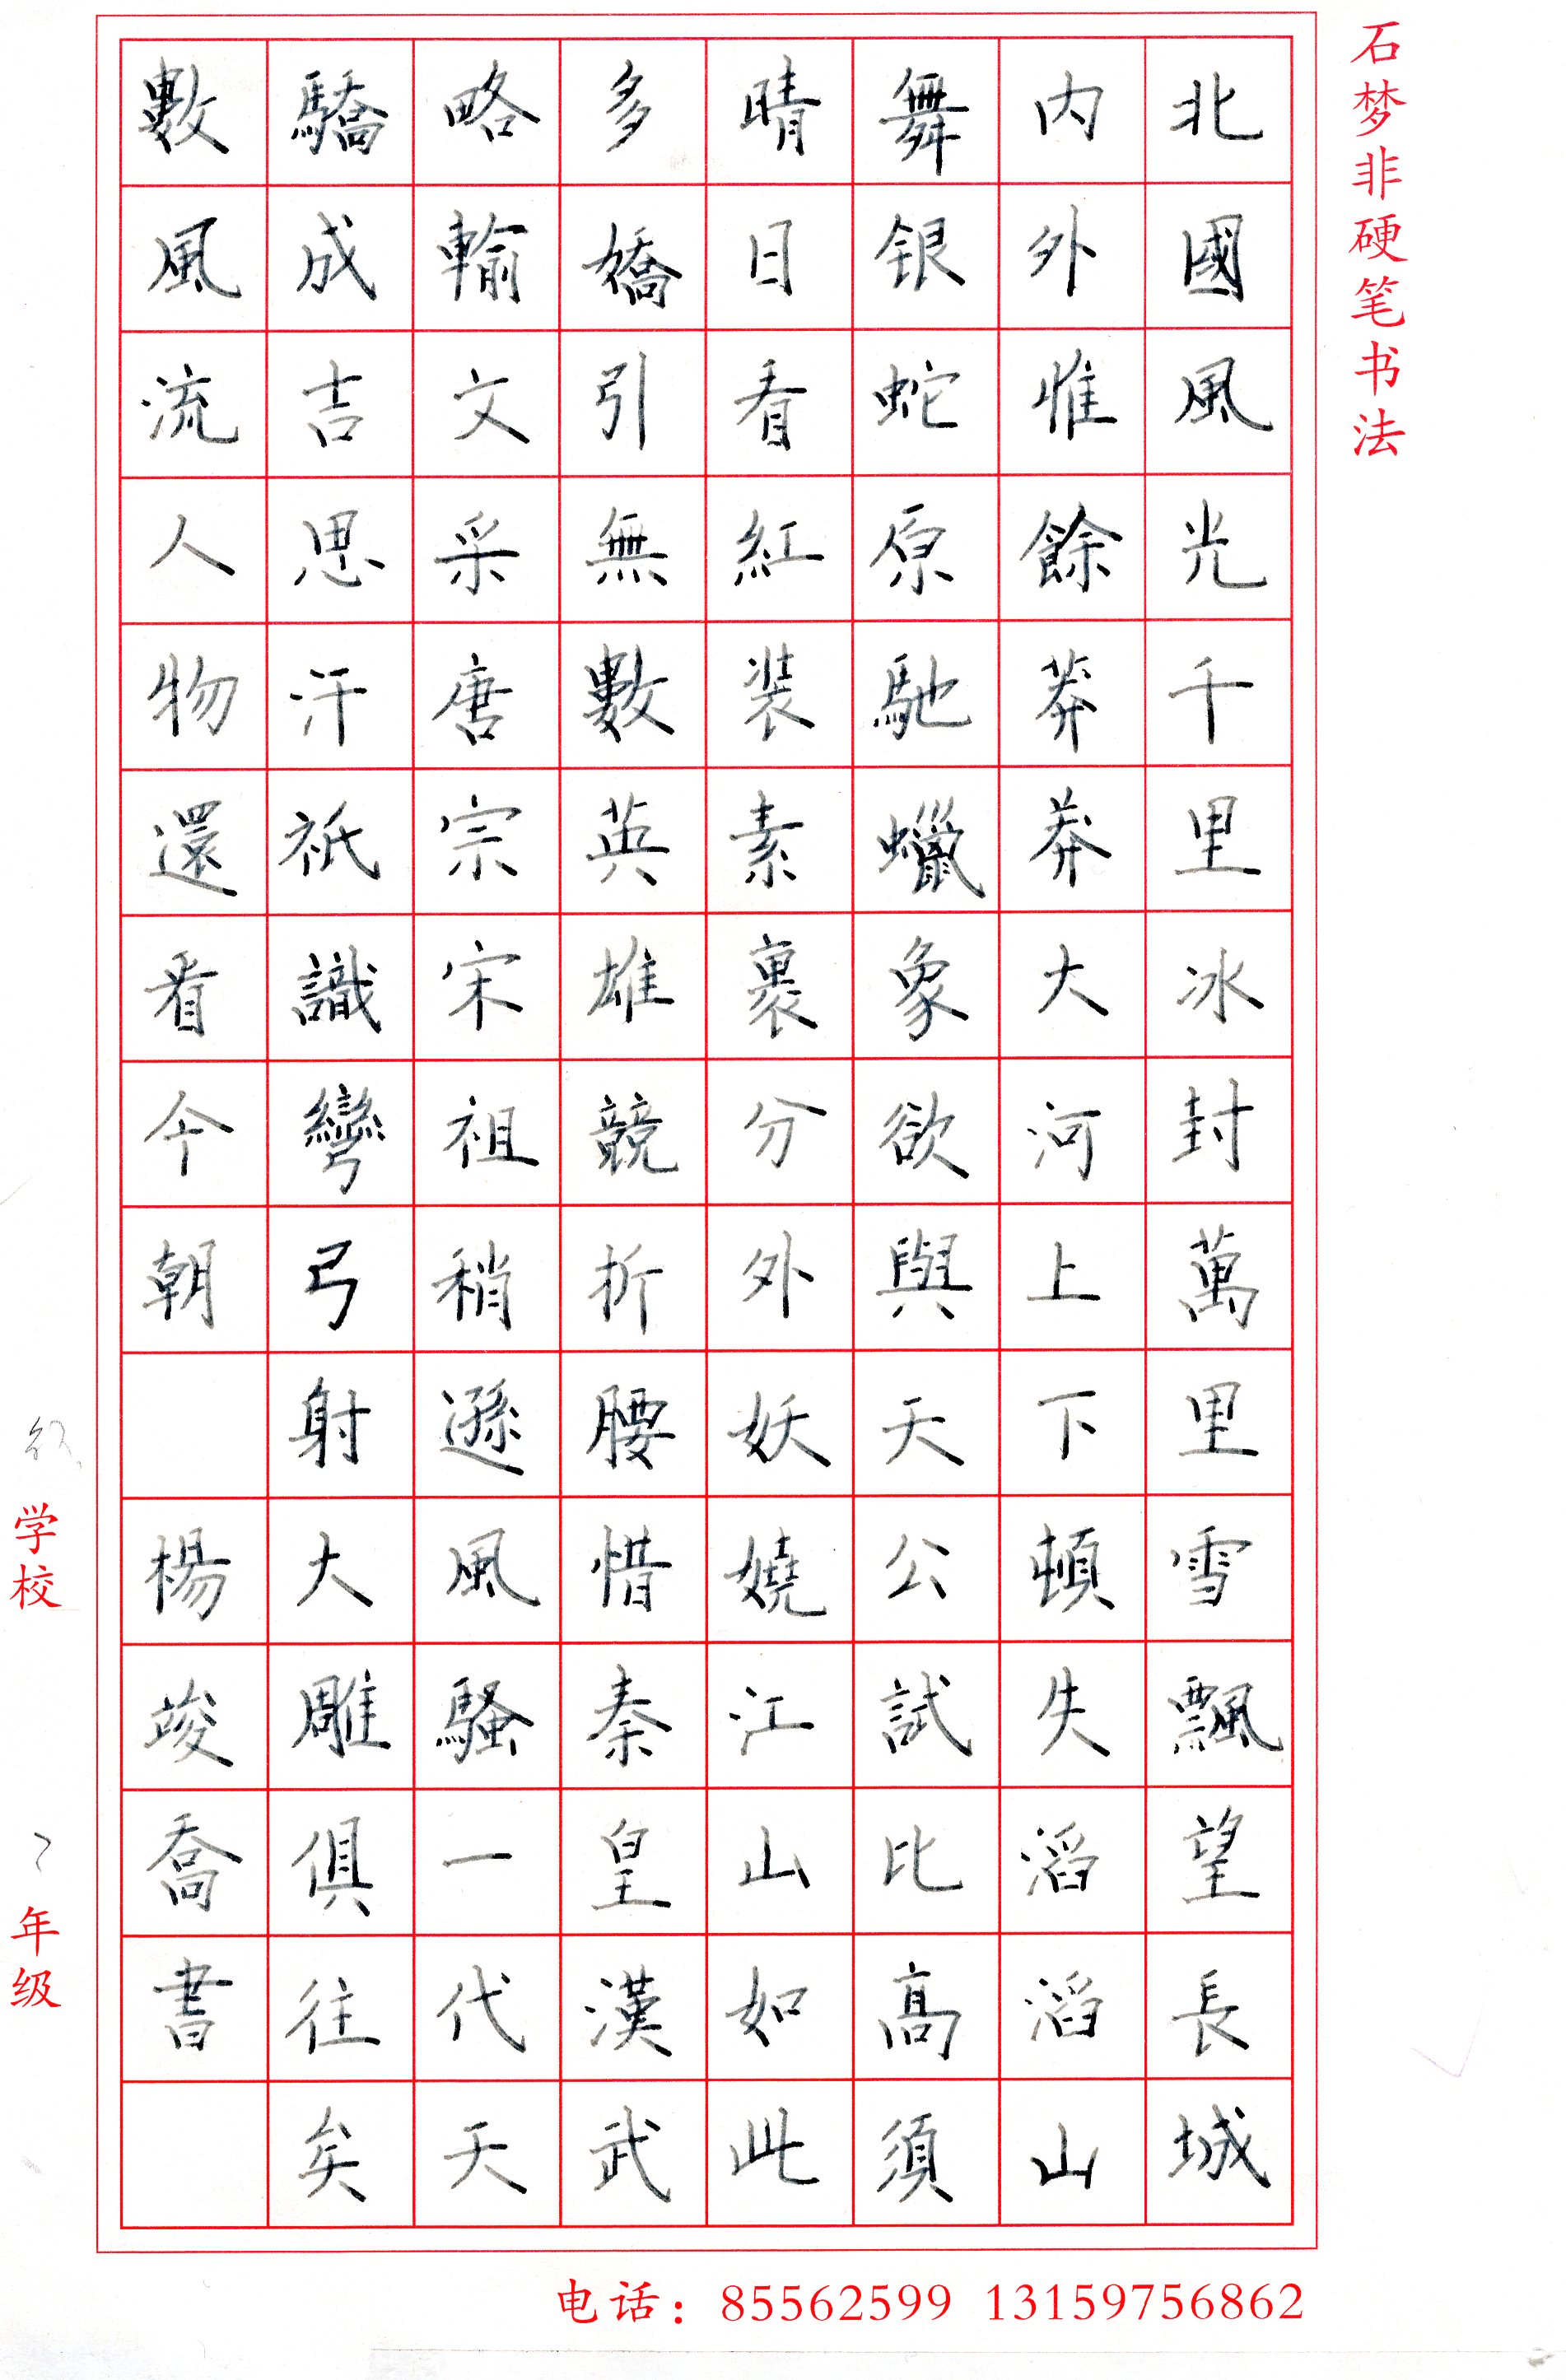 石梦非硬笔书法
北國風光千里冰封萬里雪飄望長城
内外惟餘莽莽大河上下頓失滔滔山
舞银蛇原馳蠟象欲與天公試比高須
晴日看紅装素裹分外妖嬈江山如此
多嬌引無數英雄競折腰惜秦皇漢武
略輸文采唐宗宋祖稍遜風騷一代天
驕成吉思汗祇識彎弓射大雕俱往矣
數風流人物還看今朝 楊竣喬書
学校 年级
电话：85562599 13159756862